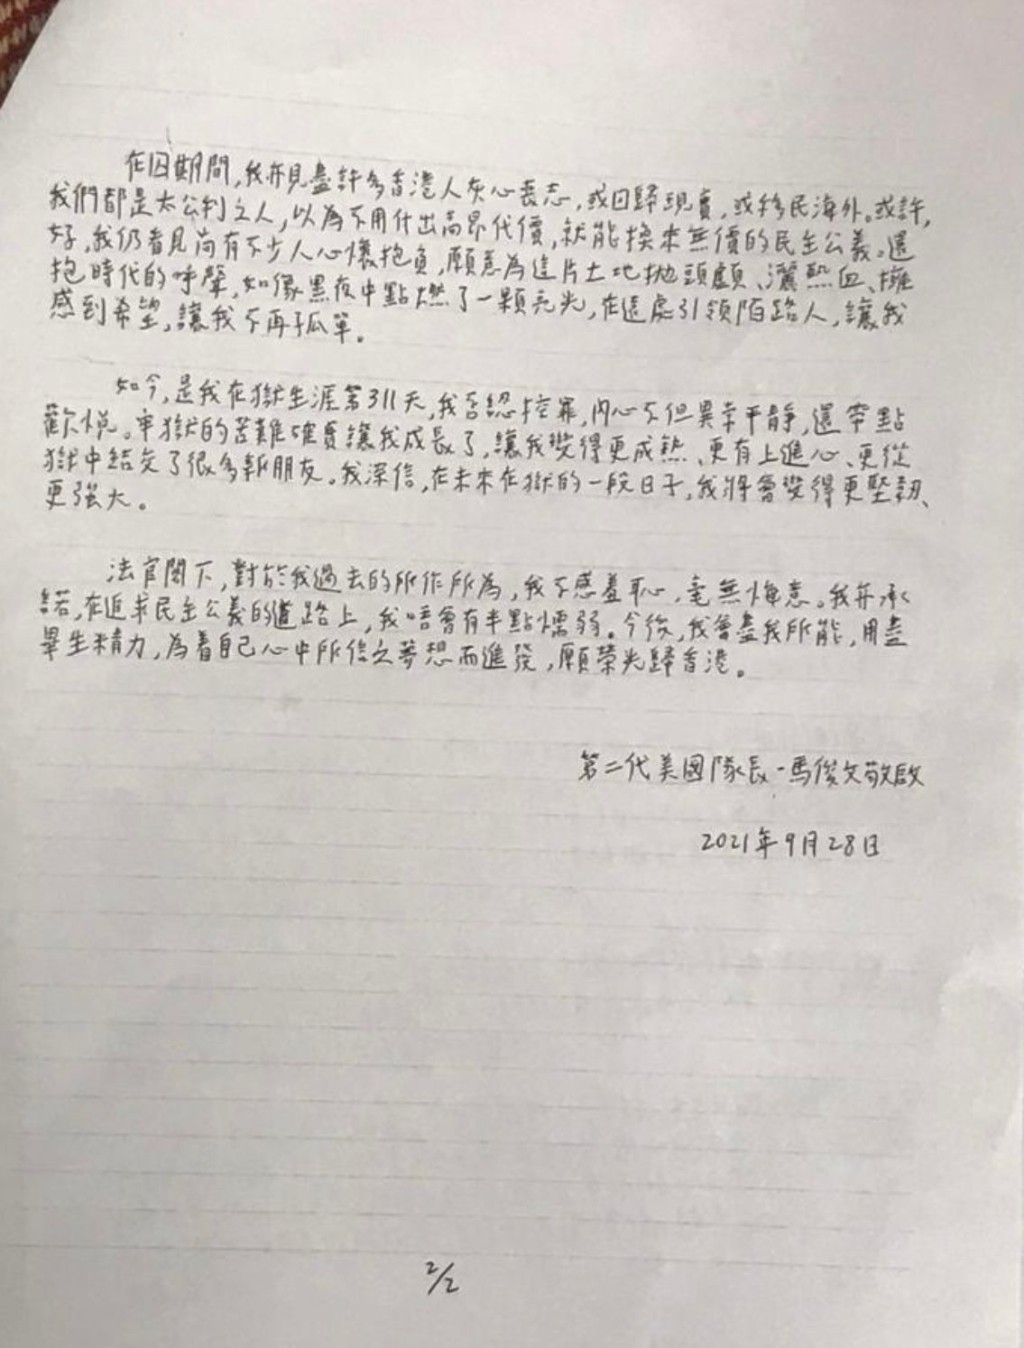 在囚期間,我亦見盡許多香港人灰心喪志,或回歸現實,或移民海外。或許,
我們都是太公利之人,以為不用付出高昂代價,就能換來無價的民主公義。還
好,我仍看見尚有不少人心懷抱負,願意為這片土地拋頭顱、灑熱血、擁
抱時代的呼聲,如像黑夜中點燃了一顆亮光,在遠處引領陌路人,讓我
感到希望,讓我不再孤單。
如今,是我在獄生涯第311天,我否認控罪,內心不但異常平靜,還帶點
歡悅。牢獄的苦難確實讓我成長了,讓我變得更成熟、更有上進心、更從
獄中結交了很多新朋友。我深信,在未來在獄的一段日子,我將會變得更堅韌、
更強大。
法官閣下,對於我過去的所作所為,我不感羞恥,毫無悔意。我亦承
諾,在追求民主公義的道路上,我唔會有半點懦弱。今後,我會盡我所能,用盡
畢生精力,為着自己心中所信之夢想而進發,願榮光歸香港。
第二代美國隊長-馬俊文敬啟
2021年9月28日
2/2